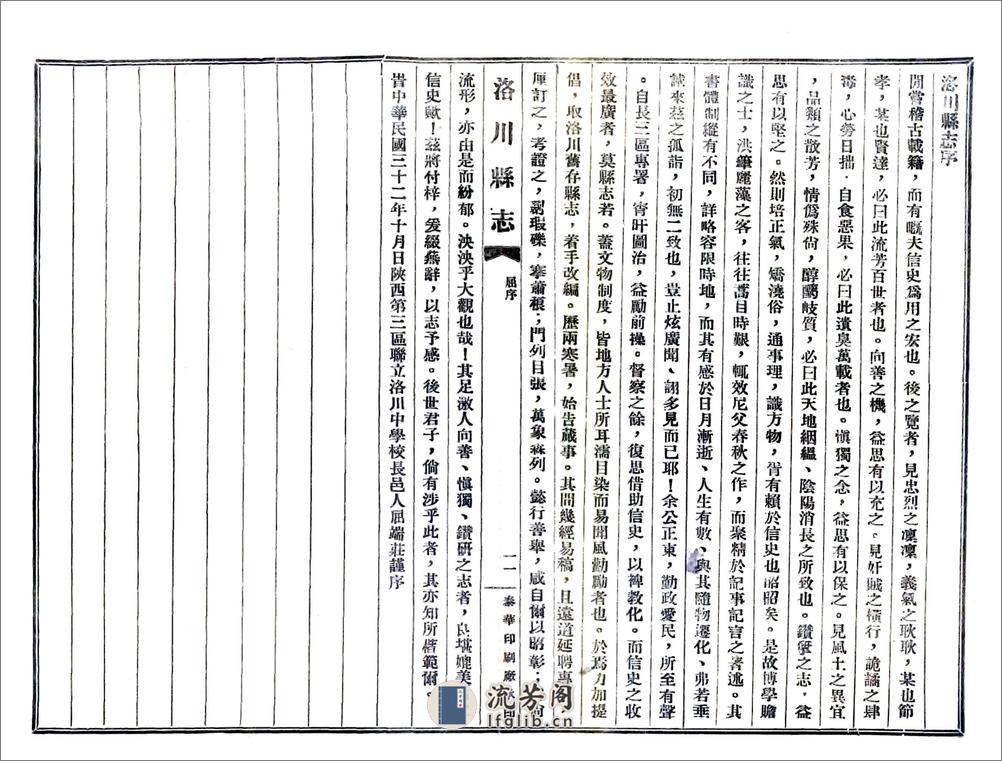 洛川縣志序
閒嘗稽古載籍，而有嘅夫信史爲用之宏也。後之覽者，見忠烈之凜凜，義氣之耿耿，某也節
孝，某也賢達，必曰此流芳百世者也。向善之機，益思有以充之。見奸賊之橫行，詭譎之肆
毒，心勞日拙．自食惡果，必曰此遺臭萬載者也。愼獨之念，益思有以保之。見風土之異宜
，品類之散芳，情僞殊尙，醇醨岐質，必曰此天地絪縕、陰陽消長之所致也。鑽學之志．益
思有以堅之。然則培正氣，矯澆俗，通事理，識方物，胥有賴於信史也昭昭矣。是故博學贍
識之士，洪筆麗藻之客，往往蒿目時艱，輒效尼父春秋之作，而聚精於記事記言之著述。其
書體制縱有不同，詳略容限時地，而其有感於日月漸逝、人生有數、與其隨物遷化、弗若垂
諸來茲之孤詣，初無二致也，豈止炫廣聞、詡多見而已耶！余公正東，勤政愛民，所至有聲
。自長三區專署，宵旰圖治，益勵前操。督察之餘，復思借助信史，以裨敎化。而信史之收
效最廣者，莫縣志若。蓋文物制度，皆地方人士所耳濡目染而易聞風勸勵者也。於焉力加提
倡，取洛川舊存縣志，着手改編。歷兩寒暑，始告蕆事。其間幾經易稿，且遠道延聘專
厘訂之，考證之，剔瑕礫，搴蕭稂；門列目張，萬象森列。懿行善舉，咸自爾以昭彰；
洛川縣志
屈序
一一
泰華印刷廠
流形，亦由是而紛郁。泱泱乎大觀也哉！其足激人向善、愼獨、鑽硏之志者，良堪媲美
信史歟！茲將付梓，爰綴蕪辭，以志予感。後世君子，倘有涉乎此者，其亦知所借範爾。
旹中華民國三十二年十月日陝西第三區聯立洛川中學校長邑人屈端莊謹序
流芳阁
lfglib.cn